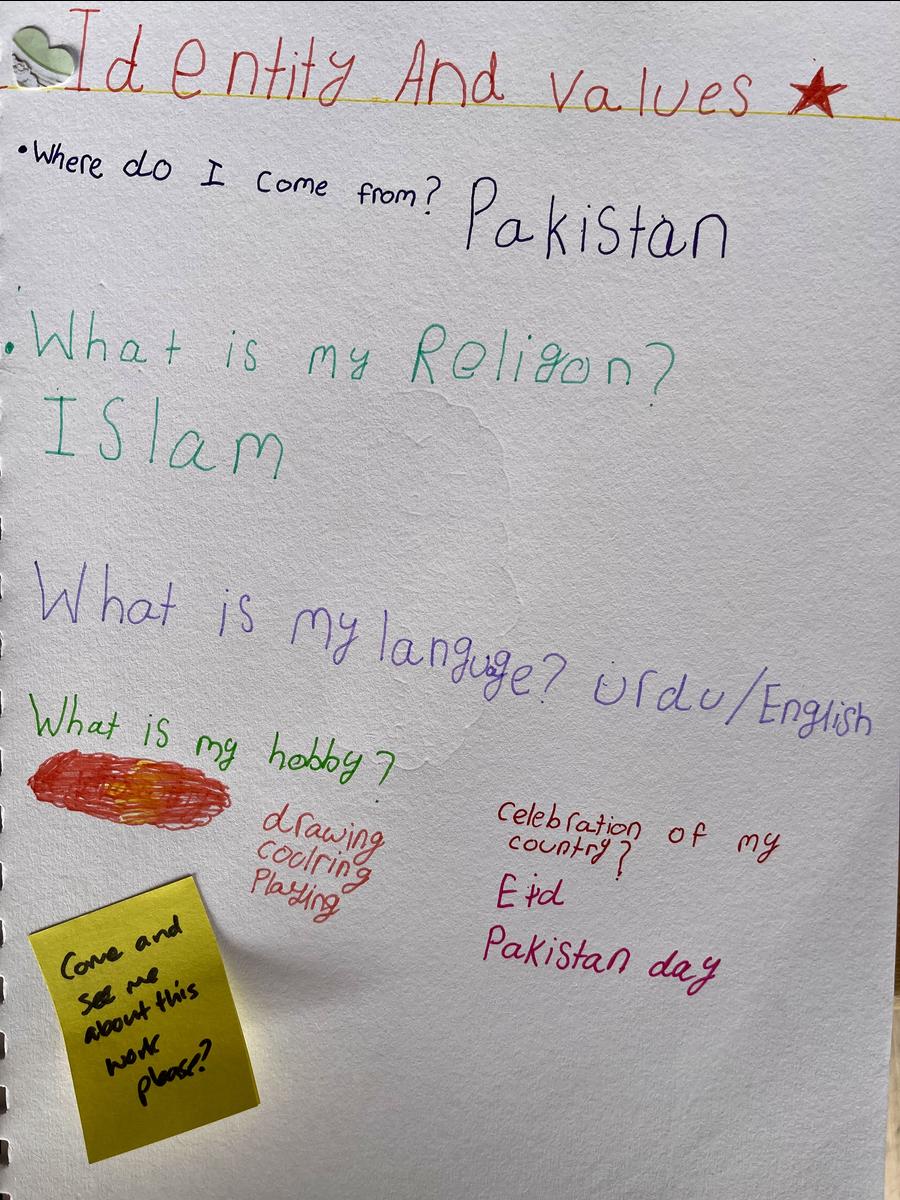 Identity And values
• Where do I come from? Pakistan
• What is my Religon?
ISlam
What is my languge? Urdu/English
What is my hobby?
drawing
coolring
Playing
celebration of my
country?
Eid
Pakistan day
Come and
see me
about this
work
please?